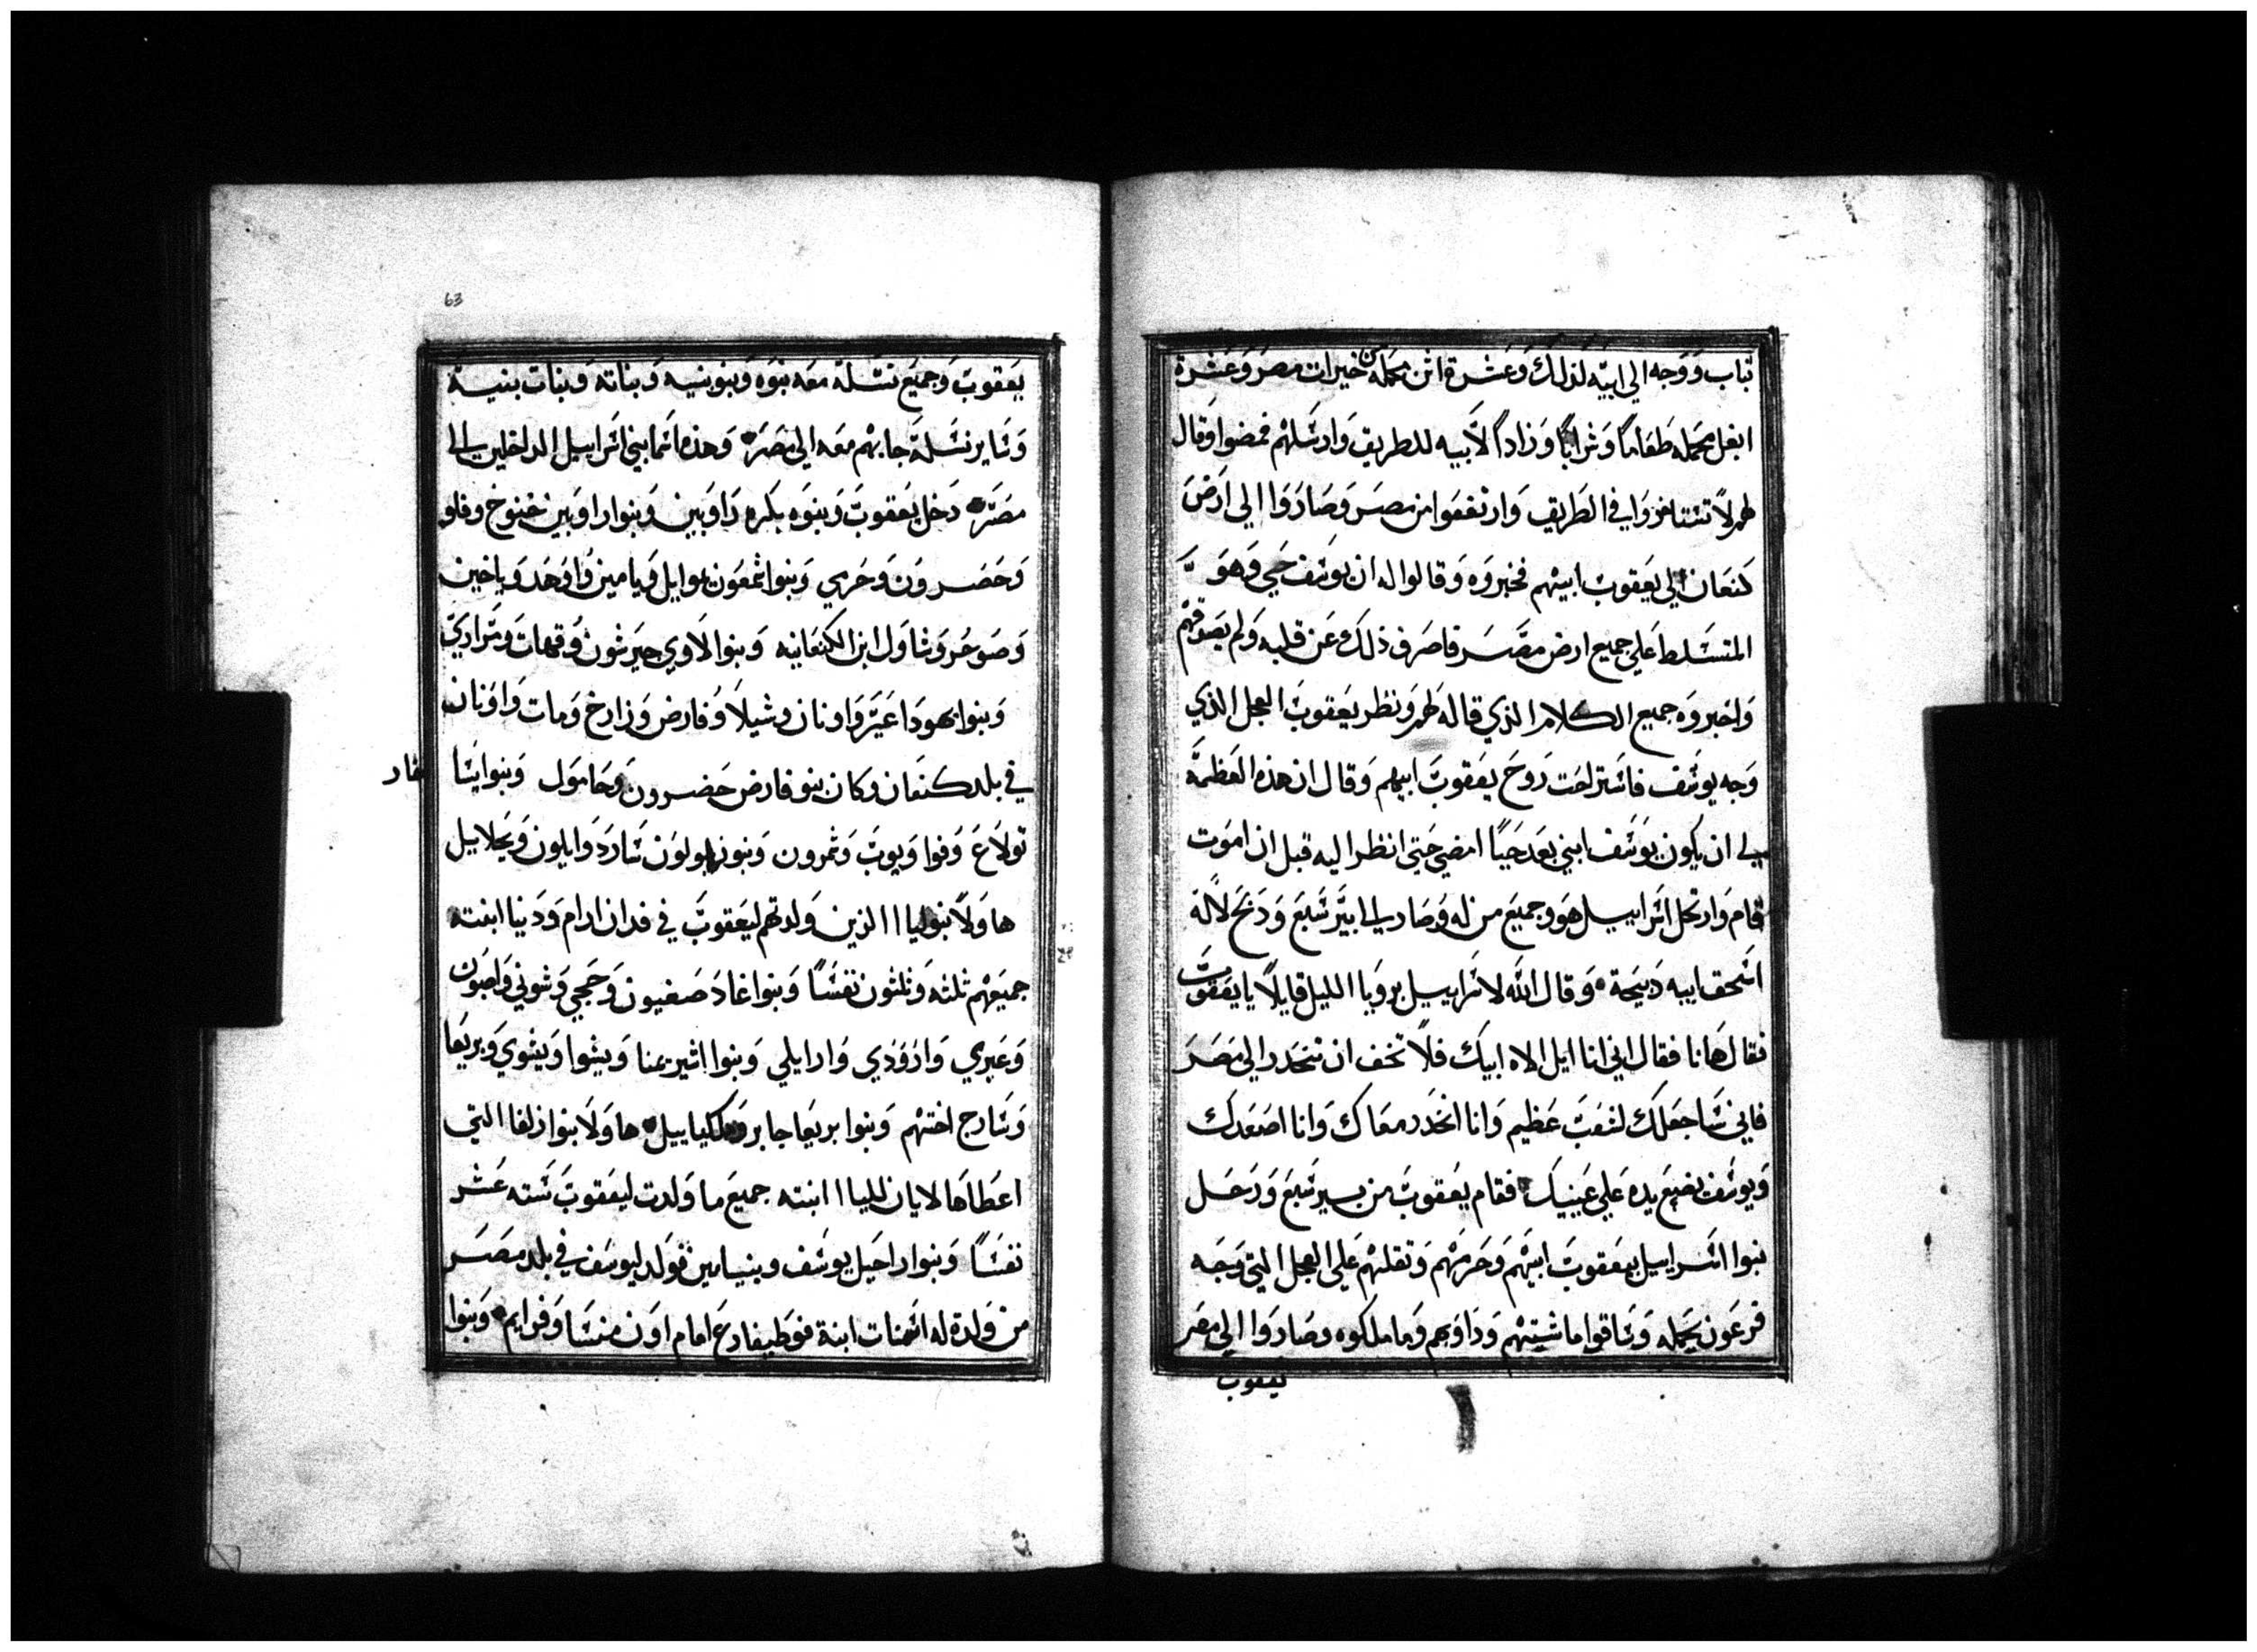 تياب ووجه الي ابيه لذلك وعشرة اتن محمله من خيرات مصر وعشرة
ابغل محمله طعاما وشرابا وزادا لابيه للطريق وارسلهم فمضوا وقال
لهم لا تتشاخروا في الطريق وارتفعوا من مصر وصاروا الي ارض
كنعان الي يعقوب ابيهم فخبروه وقالوا له ان يوسف حي وهو
المتسلط علي جميع ارض مصر فاصرف ذلك عن قلبه ولم يصدقهم
واخبروه جميع الكلام الذي قاله لهم ونظر يعقوب العجل الذي
وجه يوسف فاستراحت روح يعقوب ابيهم وقال ان هذه العظمة
لي ان يكون يوسف ابني بعد حيا امضي حتي انظر اليه قبل ان اموت
قام وارتحل اسراييل هو وجميع من له وصار الي ابير سبع ودبح لاله
اسحق ابيه دبيحة وقال الله لاسراييل برويا الليل قايلا يا يعقوب
فقال هانا فقال اني انا ايل الاه ابيك فلا تخف ان تنحدر الي مصر
فاني ساجعلك لشعب عظيم وانا انحدر معاك وانا اصعدك
ويوسف يضع يده علي عينيك فقام يعقوب من بير سبع ورحل
بنوا اسراييل بيعقوب ابيهم وحرمهم وتقلهم علي العجل التي وجه
فرعون بحمله وساقوا ماشيتهم ودوابهم وما ملكوه وصاروا الي مصر
يعقوب
63
يعقوب وجميع نسله معه بنوه وبنو بنيه وبناته وبنات بنيه
وساير نسله جا بهم معه الي مصر وهذه اسما بني اسراييل الداخلين الي
مصر دخل يعقوب وبنوه بكره راوبين وبنوا راوبين خنوخ وفلو
وحصرون وحرمي وبنوا شمعون يموايل ويامين واوحد وياخين
وصوحر وشاول ابن الكنعانيه وبنوا لاوي جيرشون وقهات ومراري
وبنوا يهودا عير واونان وشيلا وفارض وزارخ ومات واونان
في بلد كنعان وكان بنو فارض حضرون وحامول وبنوا يسا
تولاع وفوا ويوب وشمرون وبنو زابولون سارد وايلون ويحلاييل
هاولا بنو ليا االذين ولدتهم ليعقوب في فدان ارام ودينا ابنته
جميعهم ثلثه وثلثون نفسا وبنوا غاد صفيون وحجي وشوني واصبون
وعيري وارودي وارايلي وبنوا اشير يمنا ويشوا ويشوي وبريعا
وسارح اختهم وبنوا بريعا جابر وملكياييل هاولا بنوا زلفا التي
اعطاها لابان لليا ابنته جميع ما ولدت ليعقوب سته عشر
نفسا وبنوا راحيل يوسف وبنيامين فولد ليوسف في بلد مصر
من ولدة له اسنات ابنة فوطيفارع امام اون منسا وفرايم وبنوا